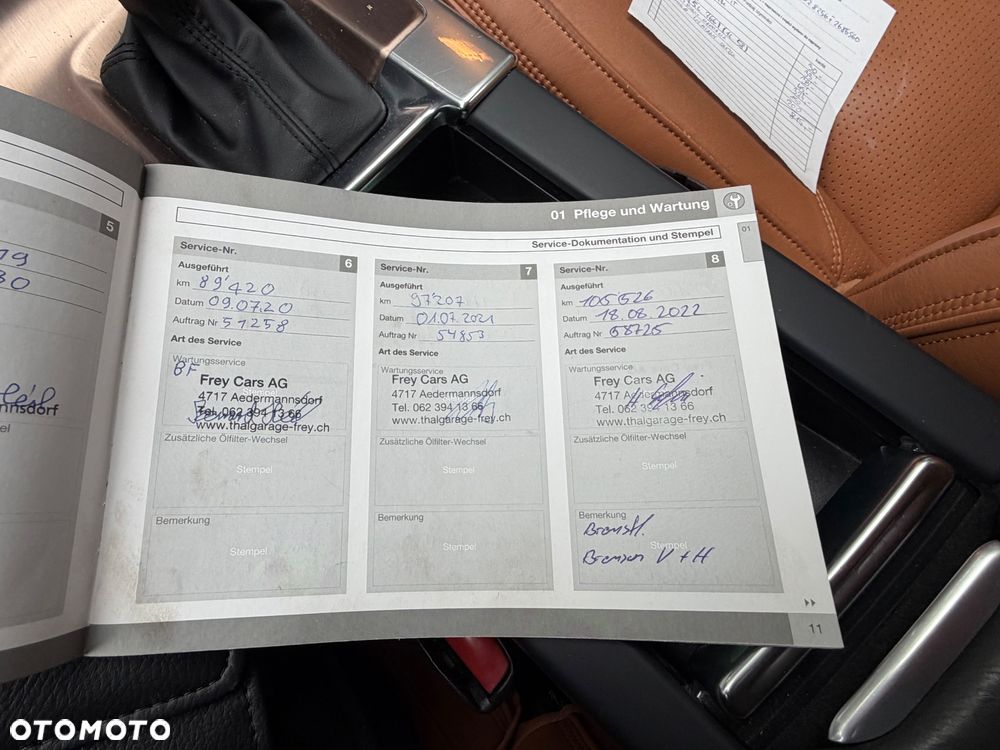 01 Pflege und Wartung
01
Service-Dokumentation und Stempel
5
19
30
nnsdorf
Service-Nr.
6
Ausgeführt
km 89'420
Datum 09.07.20
Auftrag Nr 51258
Art des Service
Wartungsservice
BF
Frey Cars AG
4717 Aedermannsdorf
Tel. 062 394 13 66
www.thalgarage-frey.ch
Zusätzliche Ölfilter-Wechsel
Stempel
Bemerkung
Stempel
Service-Nr.
7
Ausgeführt
km 97'207
Datum 01.07.2021
Auftrag Nr 54853
Art des Service
Wartungsservice
Frey Cars AG
4717 Aedermannsdorf
Tel. 062 394 13 66
www.thalgarage-frey.ch
Zusätzliche Ölfilter-Wechsel
Stempel
Bemerkung
Stempel
Service-Nr.
8
Ausgeführt
km 105'526
Datum 18.08.2022
Auftrag Nr 58725
Art des Service
Wartungsservice
Frey Cars AG
4717 Aedermannsdorf
Tel. 062 394 13 66
www.thalgarage-frey.ch
Zusätzliche Ölfilter-Wechsel
Stempel
Bemerkung
Bremsfl.
Stempel
Bremsen V + H
11
OTOMOTO